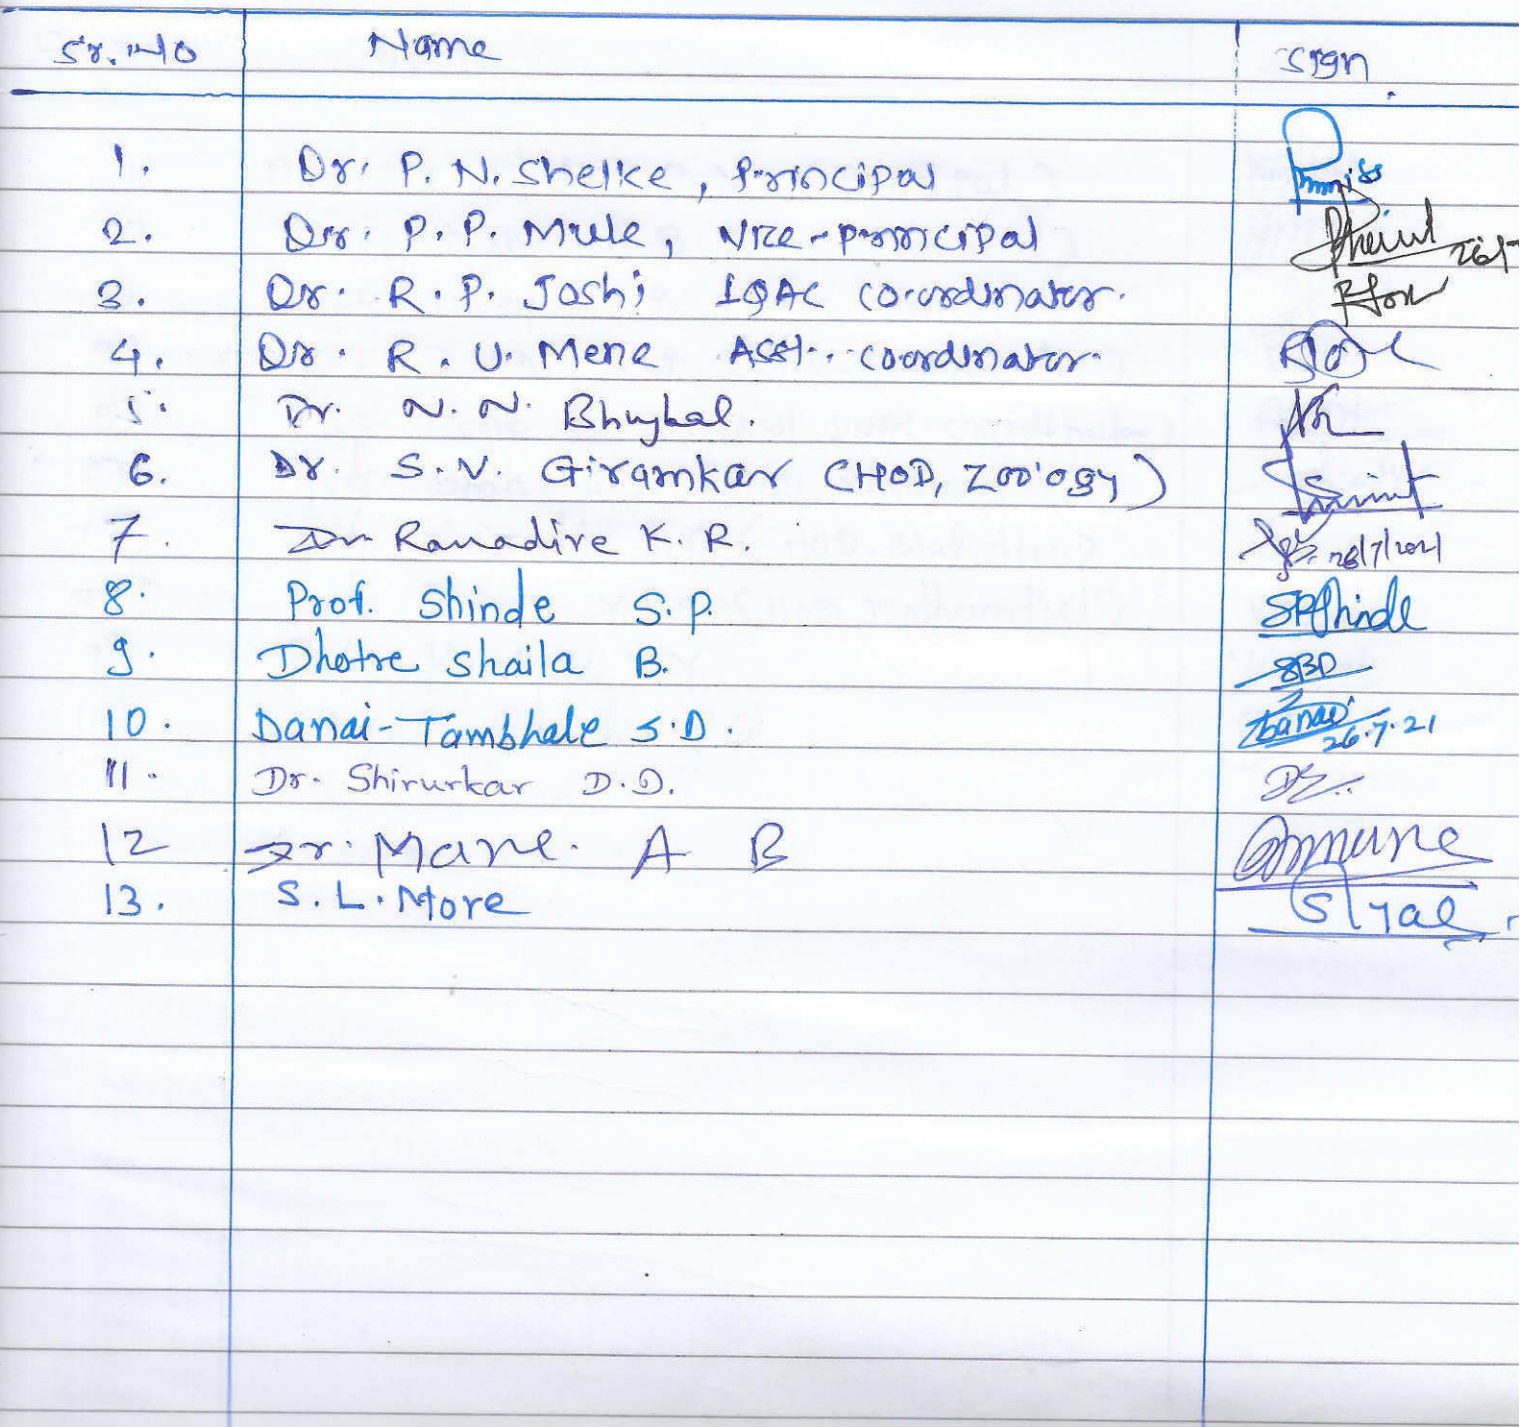 Sr. No Name Sign
1. Dr. P. N. Shelke, Principal
2. Dr. P. P. Mule, Vice-principal
3. Dr. R. P. Joshi IQAC co-ordinator.
4. Dr. R. U. Mene Asst.. coordinator.
5. Dr. N. N. Bhujbal.
6. Dr. S. V. Giramkar (HOD, Zoology)
7. Dr. Ranadive K. R. 26/7/2021
8. Prof. Shinde S. P. SPShinde
9. Dhotre Shaila B. SBD
10. Danai-Tambhale S.D. Danai 26.7.21
11. Dr. Shirurkar D. D.
12 Dr. Mane. A B
13. S. L. More